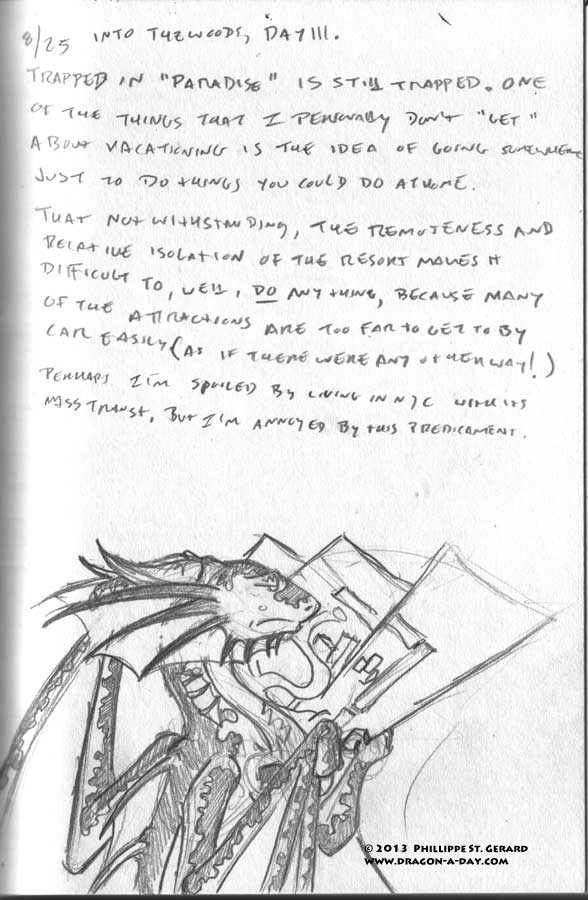 8/25 INTO THE WOODS, DAY III.
TRAPPED IN "PARADISE" IS STILL TRAPPED. ONE
OF THE THINGS THAT I PERSONALLY DON'T "GET"
ABOUT VACATIONING IS THE IDEA OF GOING SOMEWHERE
JUST TO DO THINGS YOU COULD DO AT HOME.
THAT NOT WITHSTANDING, THE REMOTENESS AND
RELATIVE ISOLATION OF THE RESORT MAKES IT
DIFFICULT TO, WELL, DO ANYTHING, BECAUSE MANY
OF THE ATTRACTIONS ARE TOO FAR TO GET TO BY
CAR EASILY (AS IF THERE WERE ANY OTHER WAY!)
PERHAPS I'M SPOILED BY LIVING IN NYC WITH ITS
MASS TRANSIT, BUT I'M ANNOYED BY THIS PREDICAMENT.
© 2013 PHILLIPPE ST. GERARD
WWW.DRAGON-A-DAY.COM